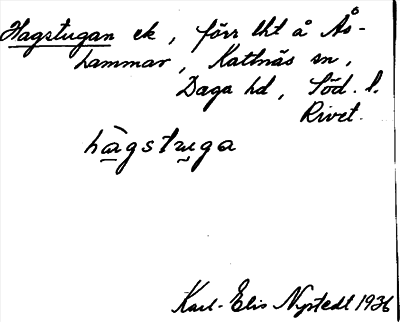 Hagstugan ek, förr lht å Ås-
hammar, Kattnäs sn,
Daga hd, Söd. l.
Rivet.
hàgstuga
Karl-Elis Nystedt 1936